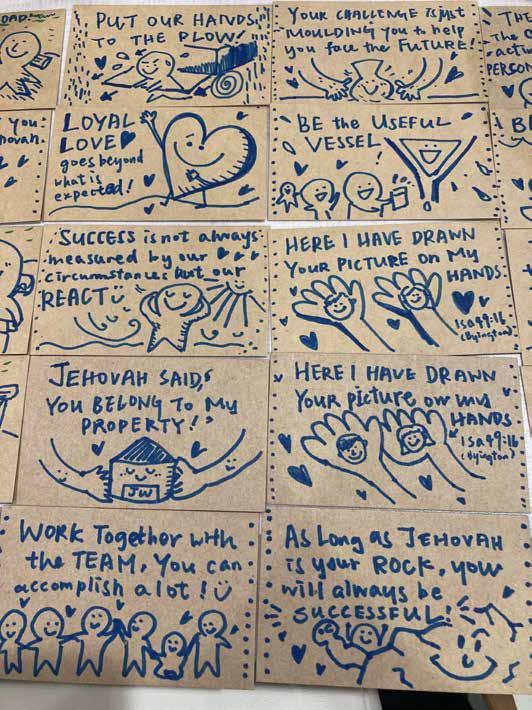 OAD."
PUT OUR HANDS
TO THE PLOW!
YOUR CHALLENGE is just
MOULDING You to help
you face the FUTURE!
PERSON
you
LOYAL
LOVE
goes beyond
what is
expected!
BE the USEFUL
VESSEL
SUCCESS is not always
measured by our
circumstances but our
REACT
HERE I HAVE DRAWN
YOUR PICTURE on My
HANDS
Isa 49:16
(Byington)
JEHOVAH SAID,
YOU BELONG TO My
PROPERTY!
JW
HERE I HAVE DRAWN
Your picture on my
HANDS
Isa 49:16
(Byington)
WORK Together with
the TEAM, You can
accomplish a lot!
As Long as JEHOVAH
is your ROCK, you
will always be
SUCCESSFUL!